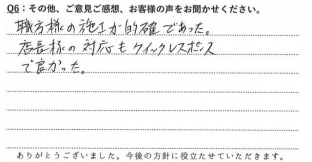 Q6：その他、ご意見ご感想、お客様の声をお聞かせください。
職方様の施工が的確であった。
店長様の対応もクイックレスポンス
で良かった。
ありがとうございました。今後の方針に役立たせていただきます。